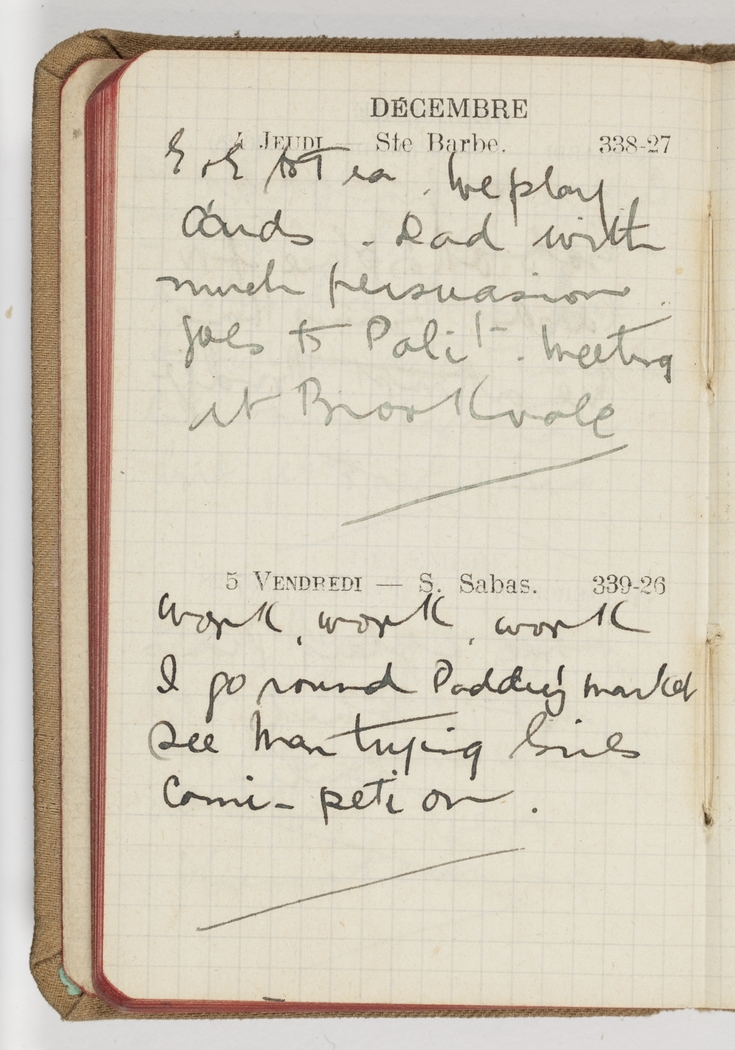 DÉCEMBRE
4 JEUDI — Ste Barbe. 338-27
E & E to Tea. We play
Cards. Dad with
much persuasion
goes to Polit. meeting
at Brookvale
5 VENDREDI — S. Sabas. 339-26
Work, work, work
I go round Paddy's market
see Man tying
Com-petion.